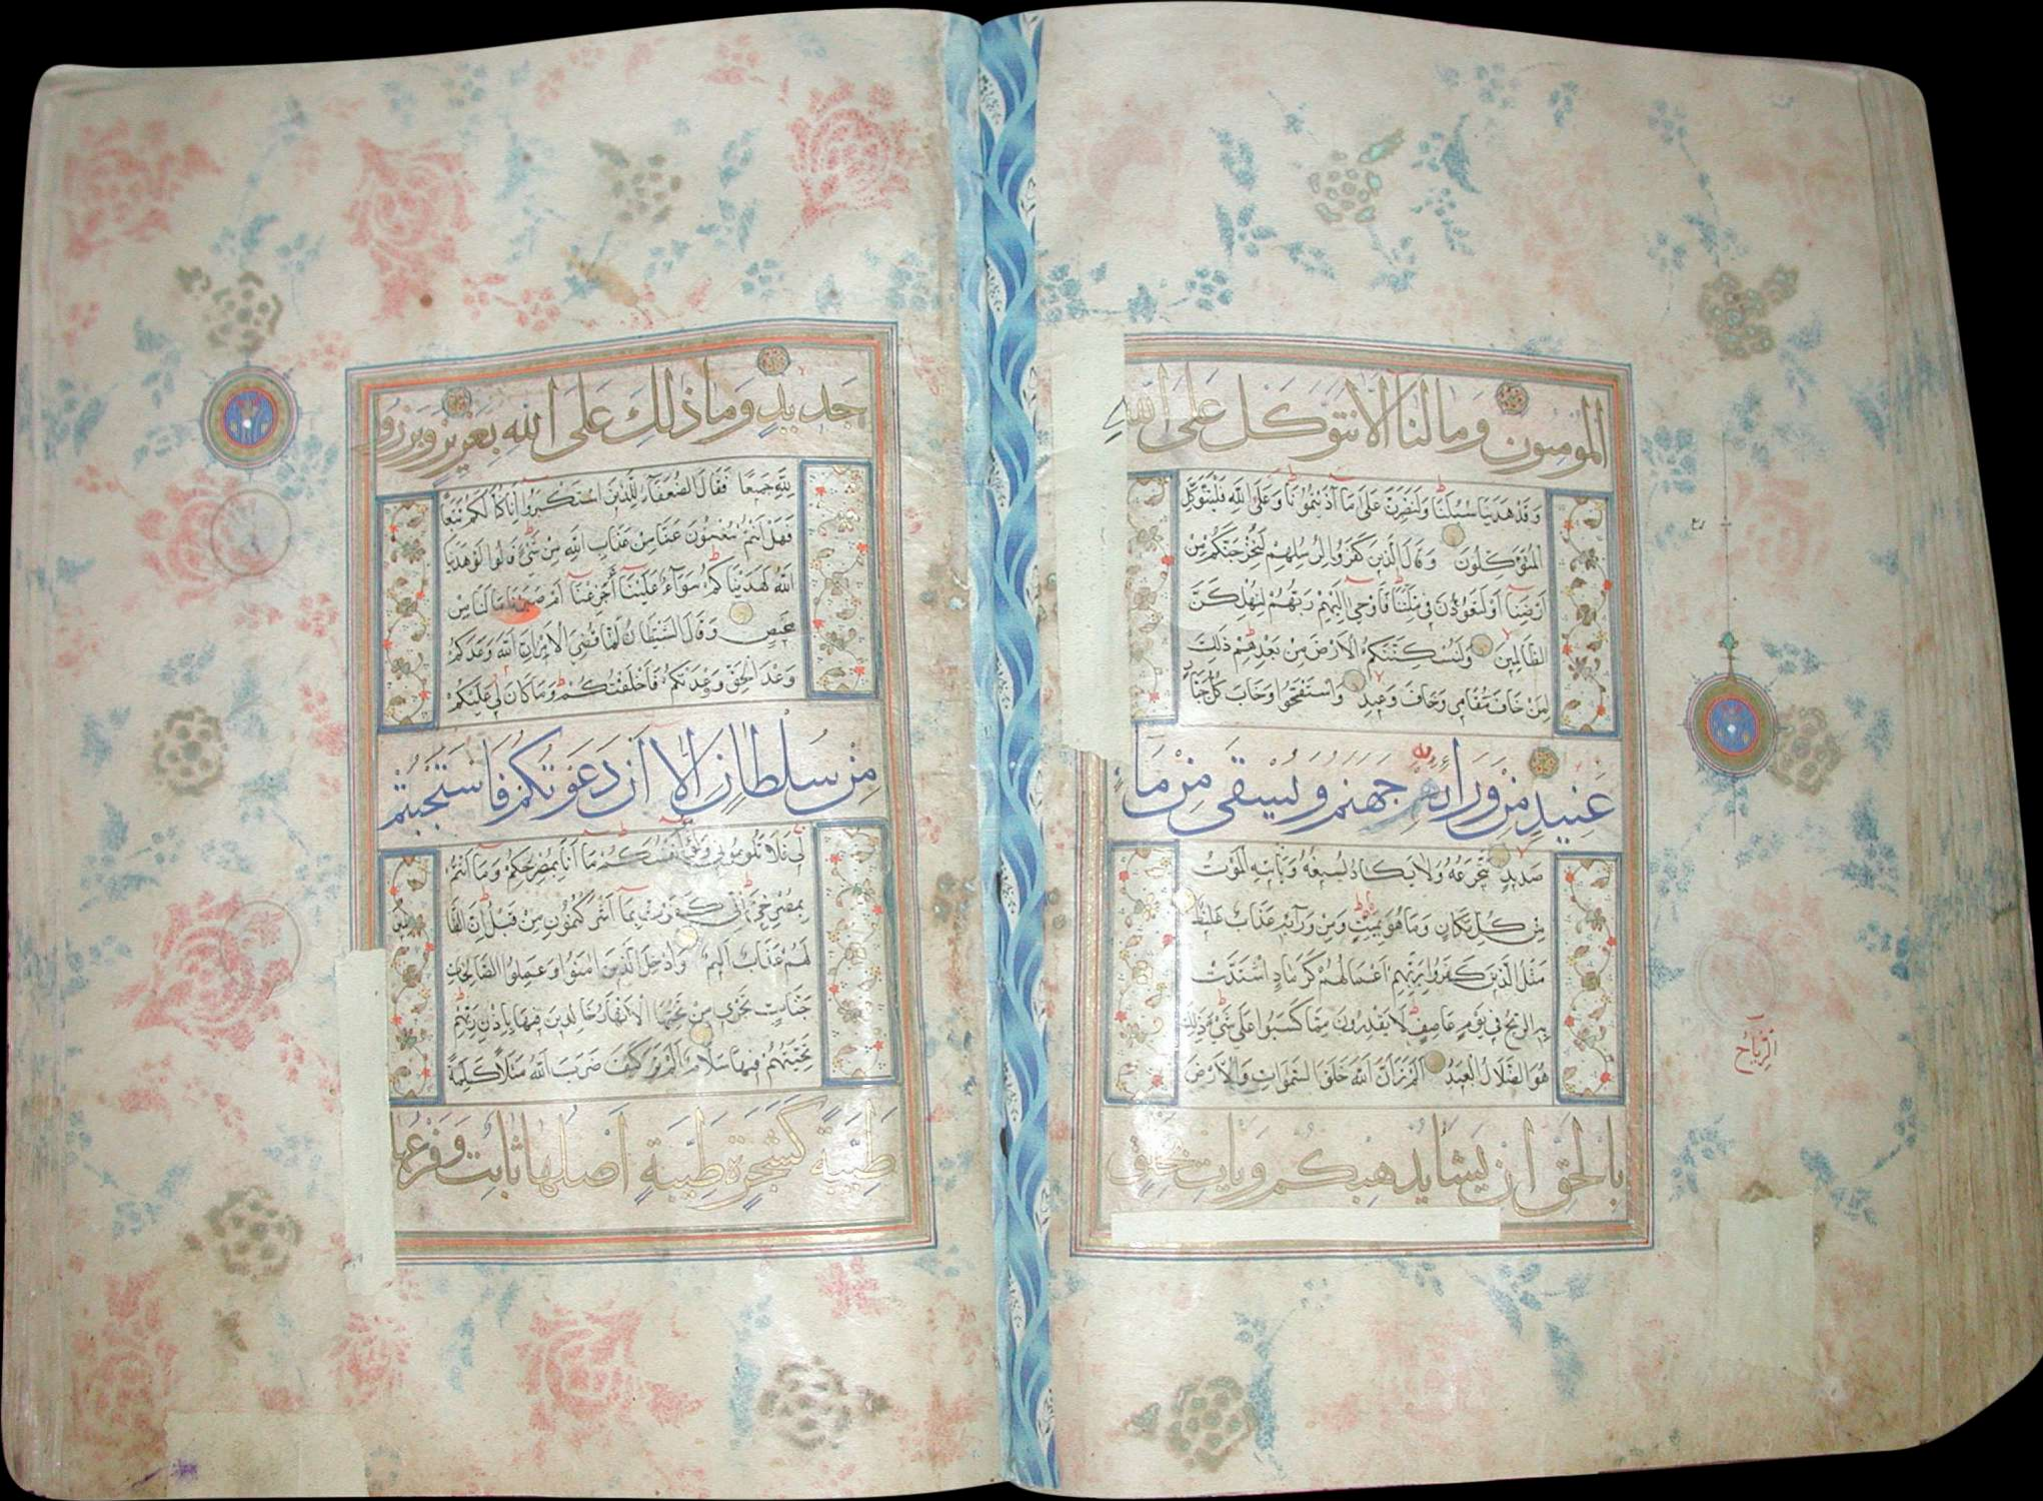 المؤمنون وما لنا ألا نتوكل على الله
وقد هدينا سبلنا ولنصبرن على ما آذيتمونا وعلى الله فليتوكل
المتوكلون وقال الذين كفروا لرسلهم لنخرجنكم من
أرضنا أو لتعودن في ملتنا فأوحى إليهم ربهم لنهلكن
الظالمين ولنسكننكم الأرض من بعدهم ذلك
لمن خاف مقامي وخاف وعيد واستفتحوا وخاب كل جبار
عنيد من ورائه جهنم ويسقى من ماء
صديد يتجرعه ولا يكاد يسيغه ويأتيه الموت
من كل مكان وما هو بميت ومن ورائه عذاب غليظ
مثل الذين كفروا بربهم أعمالهم كرماد اشتدت
به الريح في يوم عاصف لا يقدرون مما كسبوا على شيء ذلك
هو الضلال البعيد ألم تر أن الله خلق السموات والأرض
بالحق إن يشأ يذهبكم ويأت بخلق
الرياح
جديد وما ذلك على الله بعزيز وبرزوا
لله جميعا فقال الضعفاء للذين استكبروا إنا كنا لكم تبعا
فهل أنتم مغنون عنا من عذاب الله من شيء قالوا لو هدينا
الله لهديناكم سواء علينا أجزعنا أم صبرنا ما لنا من
محيص وقال الشيطان لما قضي الأمر إن الله وعدكم
وعد الحق ووعدتكم فأخلفتكم وما كان لي عليكم
من سلطان إلا أن دعوتكم فاستجبتم
لي فلا تلوموني ولوموا أنفسكم ما أنا بمصرخكم وما أنتم
بمصرخي إني كفرت بما أشركتمون من قبل إن الظالمين
لهم عذاب أليم وأدخل الذين آمنوا وعملوا الصالحات
جنات تجري من تحتها الأنهار خالدين فيها بإذن ربهم
تحيتهم فيها سلام ألم تر كيف ضرب الله مثلا كلمة
طيبة كشجرة طيبة أصلها ثابت وفرعها